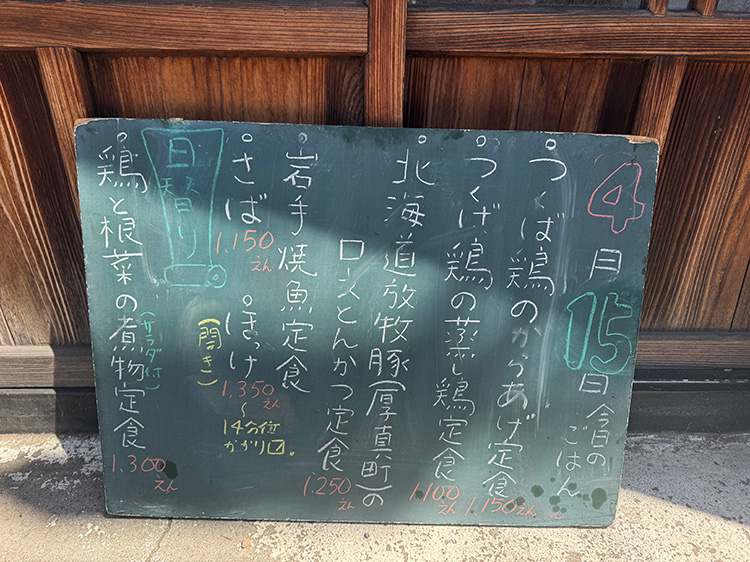 4月15日 今日のごはん
。つくば鶏のからあげ定食 1,150えん
。つくば鶏の蒸し鶏定食 1,100えん
。北海道放牧豚(厚真町)の
ロースとんかつ定食 1,250えん
。岩手焼魚定食
。さば 1,150えん
。ほっけ 1,350えん〜
(開き)
14分位
かかり〼。
日替り
。鶏と根菜の煮物定食 1,300えん
(サラダ付)